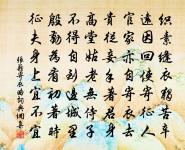 織素縫衣獨苦辛
遠因回使寄征人
官家亦自寄衣去
貴從妾手著君身
高堂姑老無侍子
不得自到邊城里
殷勤為看初著時
征夫身上宜不宜
張籍寄衣曲詩詞